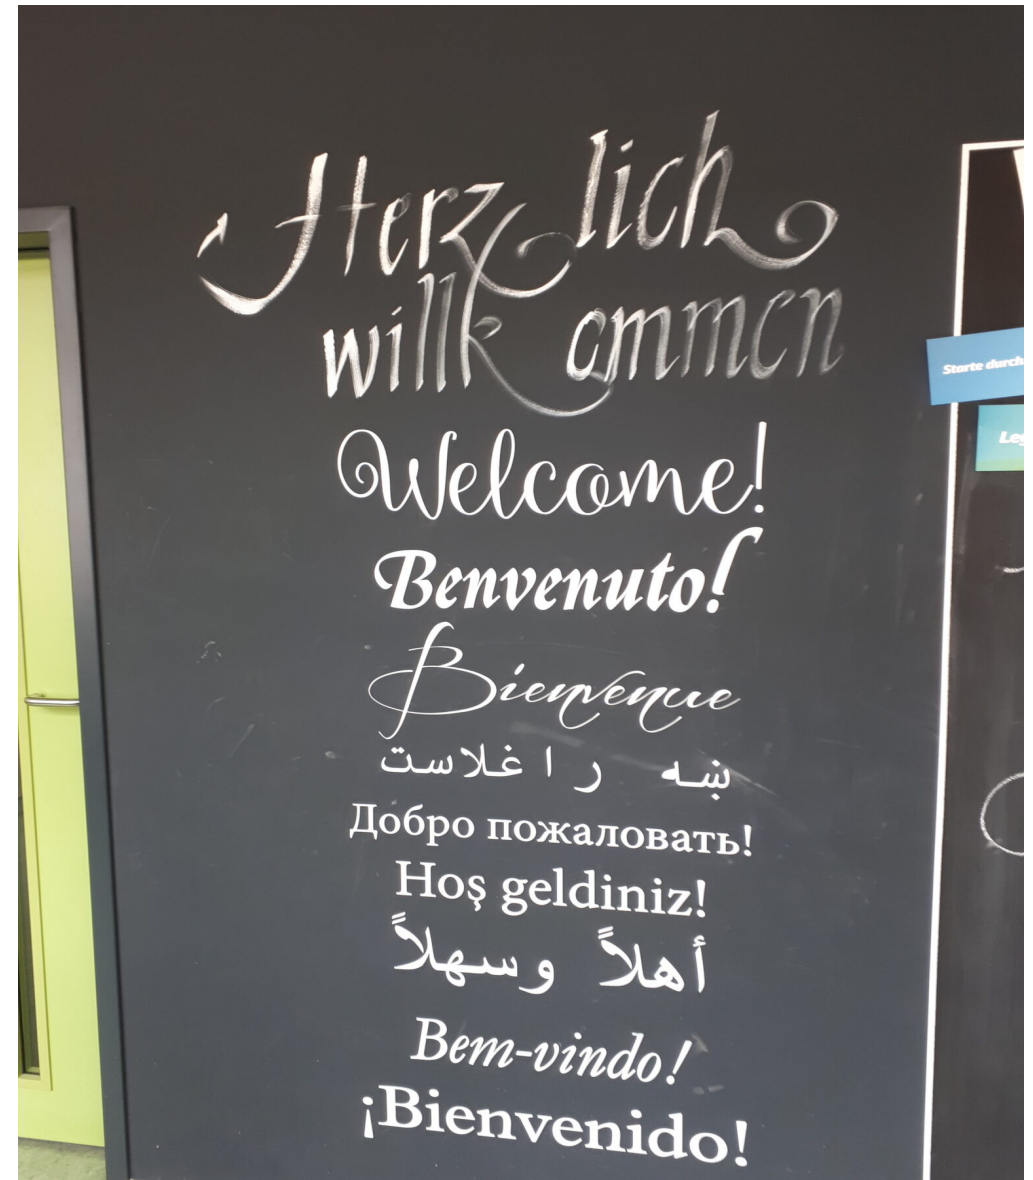 Herzlich
willkommen
Welcome!
Benvenuto!
Bienvenue
ښه راغلاست
Добро пожаловать!
Hoş geldiniz!
أهلاً وسهلاً
Bem-vindo!
¡Bienvenido!
Starte durch